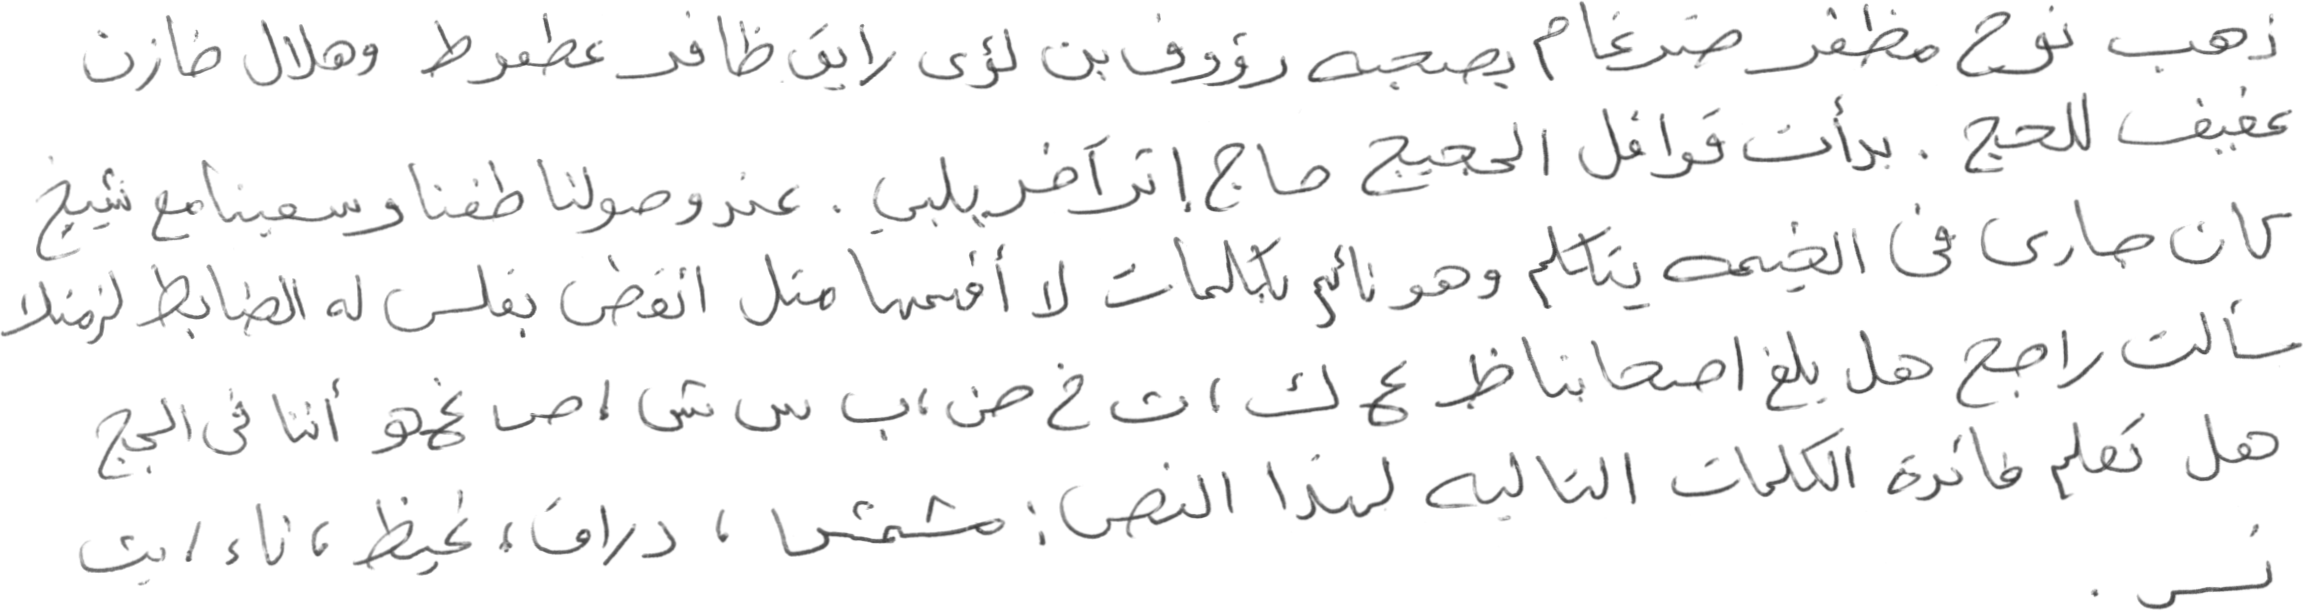 ذهب نوح مظفر ضرغام يصحبه رؤوف بن لؤى رايق ظافر عطعوط وهلال خازن
عفيف للحج . بدأت قوافل الحجيج حاج إثر آخر يلبي . عند وصولنا طفنا وسعينا مع شيخ
كان جارى فى الخيمه يتكلم وهو نائم بكلمات لا أفهمها مثل انقض بفلس له الضابط لزمتلا
سألت راجح هل بلغ اصحابنا ظ عج ك ، ت خ ض ، ب س ش ، ص غ هو أننا فى الحج
هل تعلم فائدة الكلمات التاليه لهذا النص : مشمش ، دراق ، غيظ ، ناء ، بت
نس .